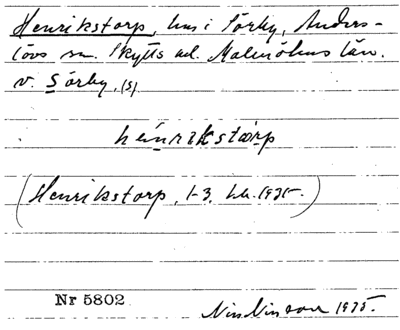 Henrikstorp, hus i Sörby, Anders-
lövs sn. Skytts hd. Malmöhus län.
v. Sörby, (s)
henrikstɷrp
(Henrikstorp, 1-3, hb. 1935.)
Nr 5802
Nils Nilsson 1935.